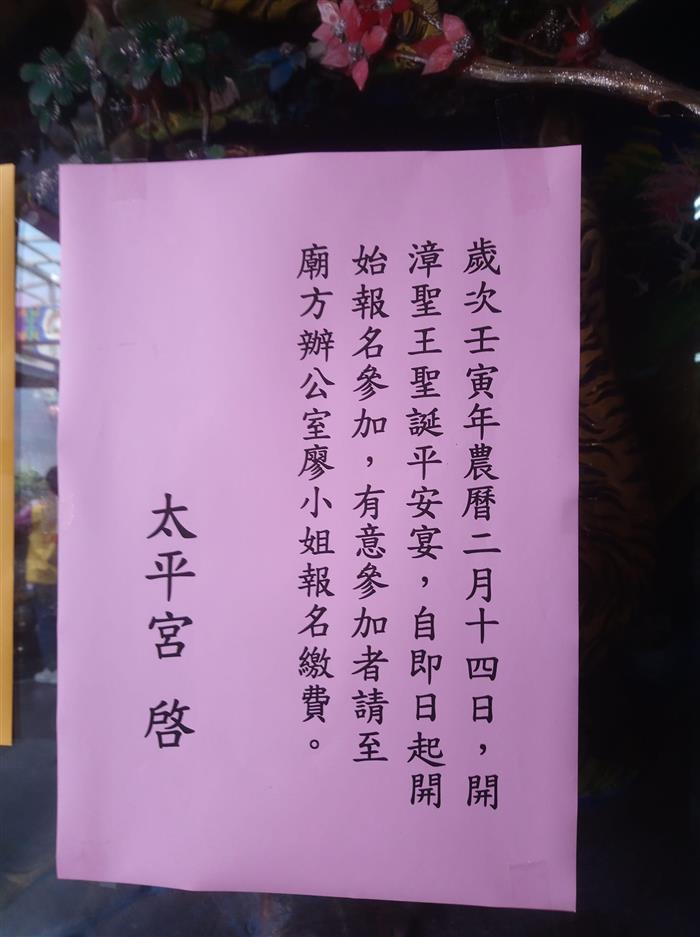 歲次壬寅年農曆二月十四日，開
漳聖王聖誕平安宴，自即日起開
始報名參加，有意參加者請至
廟方辦公室廖小姐報名繳費。
太平宮 啓